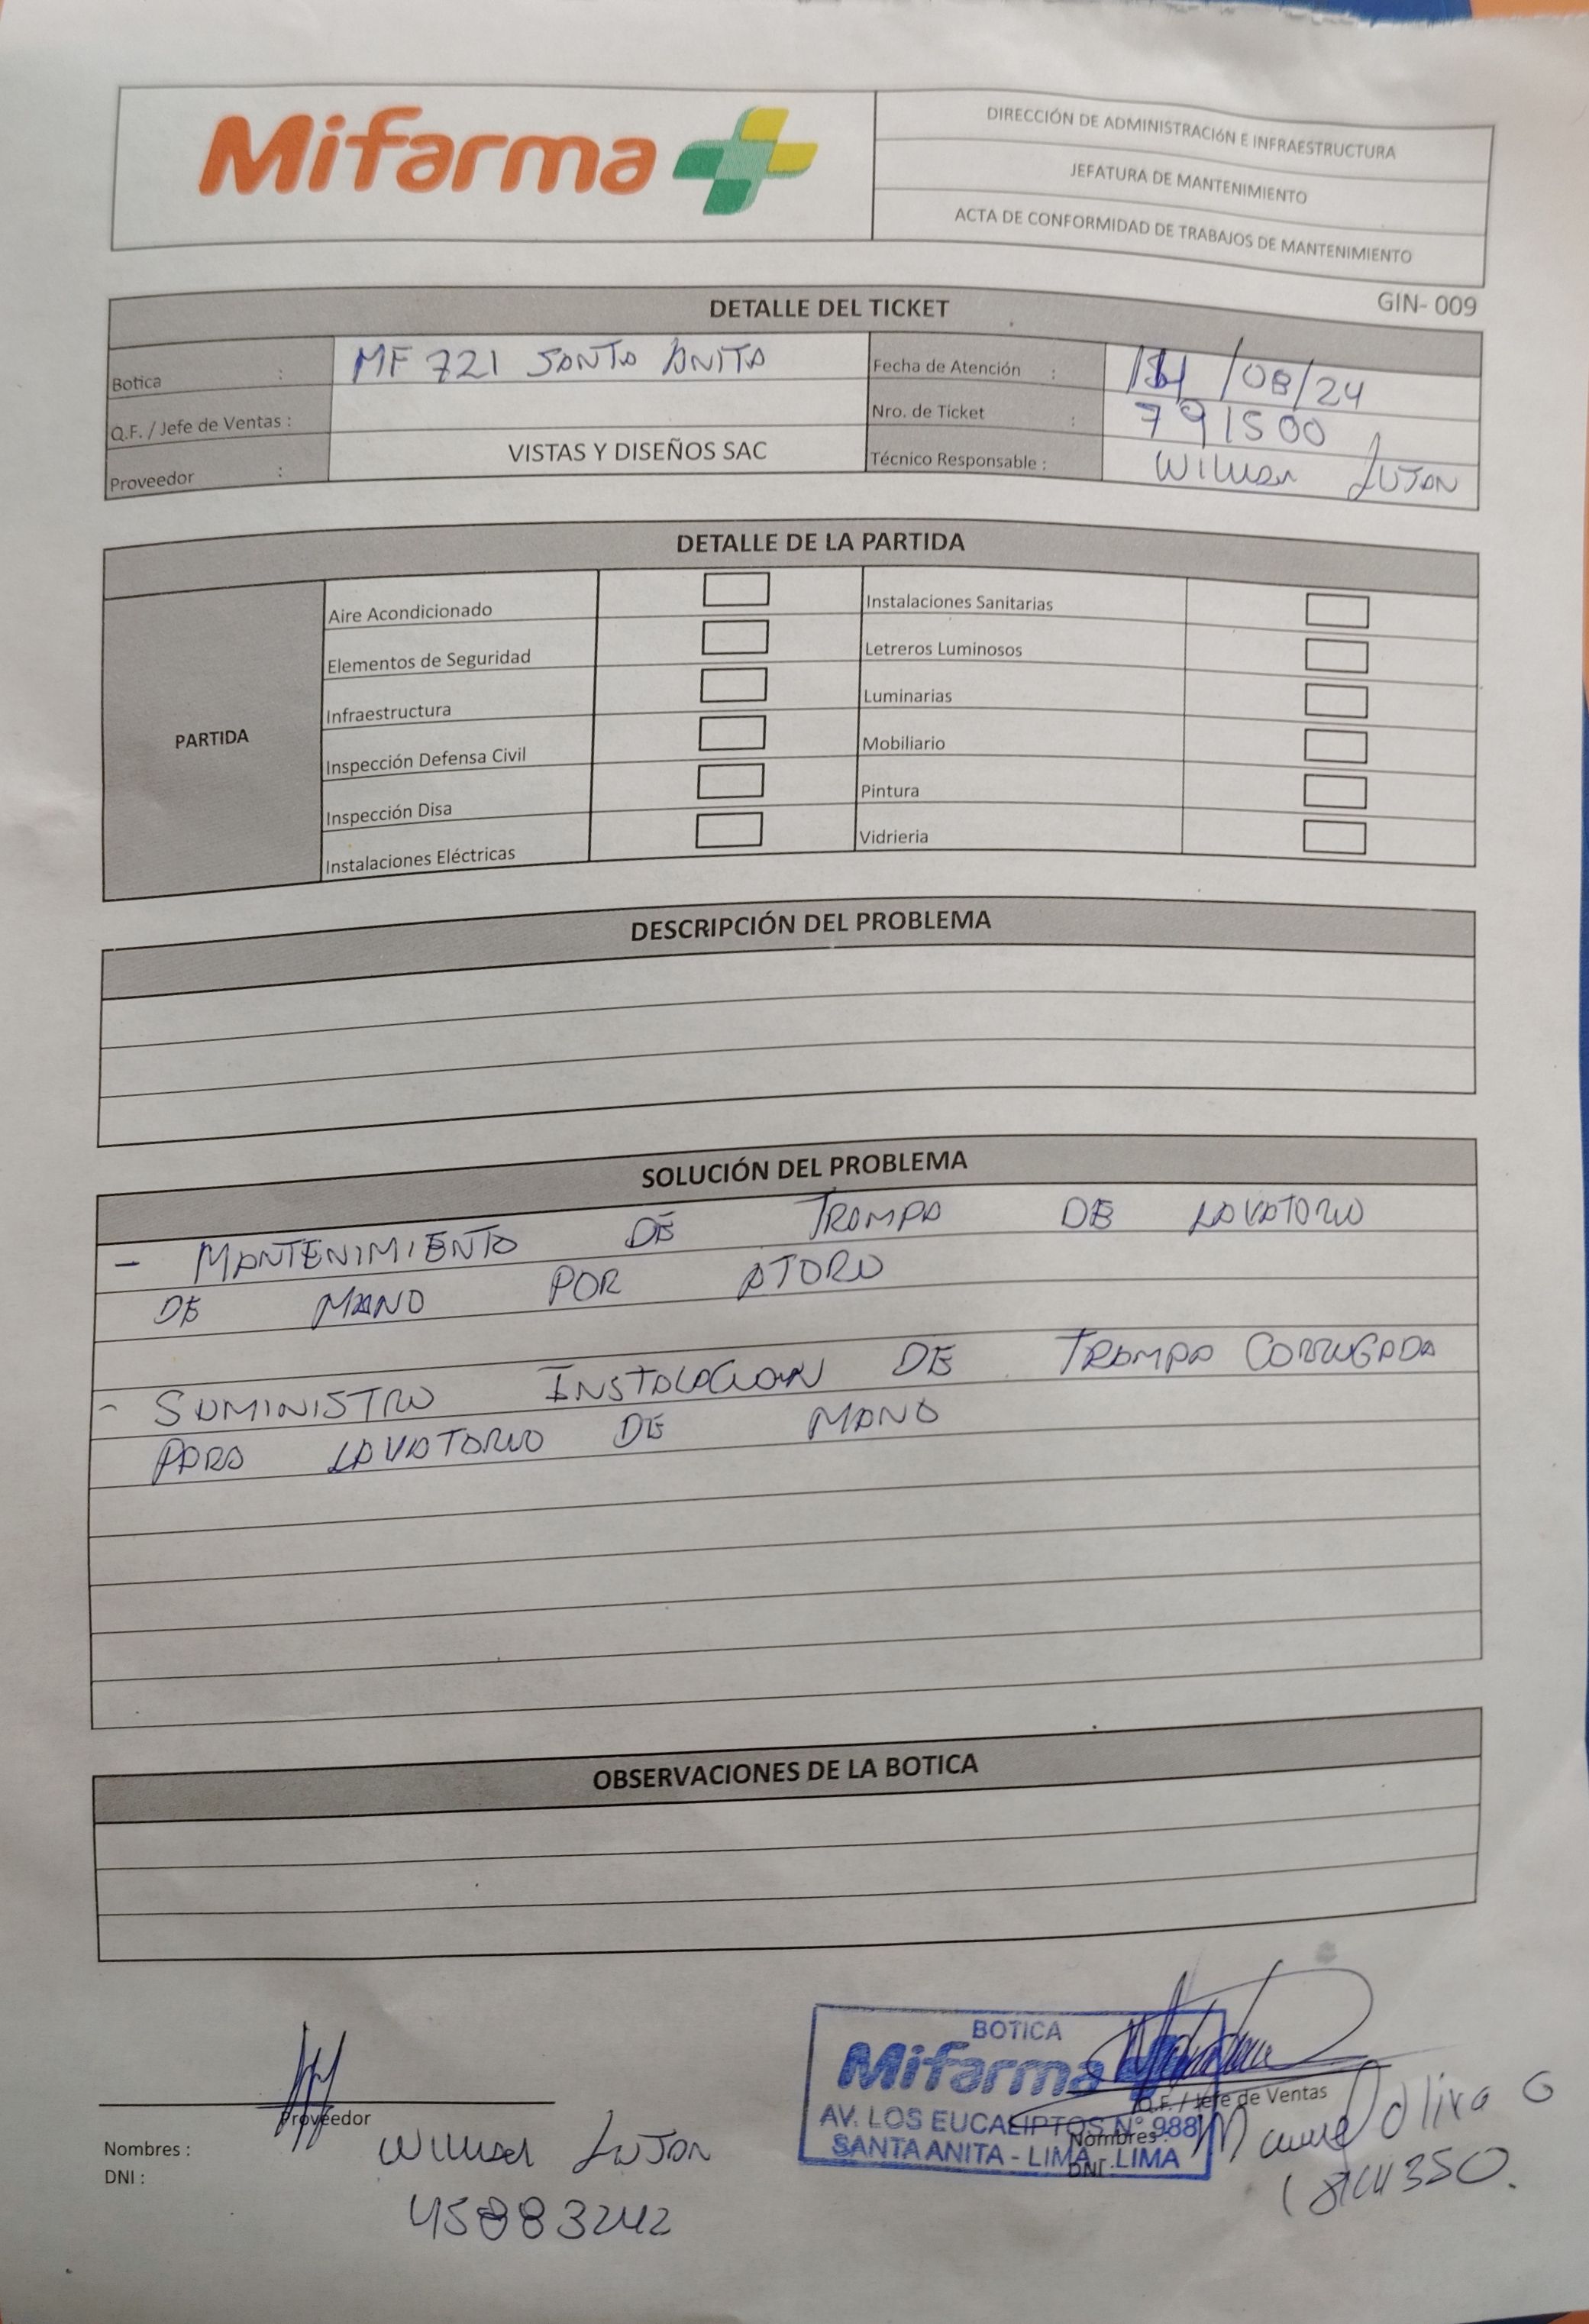 Mifarma
DIRECCIÓN DE ADMINISTRACIÓN E INFRAESTRUCTURA
JEFATURA DE MANTENIMIENTO
ACTA DE CONFORMIDAD DE TRABAJOS DE MANTENIMIENTO
GIN- 009
DETALLE DEL TICKET
Botica : MF 721 SANTA ANITA
Fecha de Atención : /08/24
Q.F. / Jefe de Ventas :
Nro. de Ticket : 791500
Proveedor : VISTAS Y DISEÑOS SAC
Técnico Responsable : LUJAN
DETALLE DE LA PARTIDA
PARTIDA
Aire Acondicionado
Instalaciones Sanitarias
Elementos de Seguridad
Letreros Luminosos
Infraestructura
Luminarias
Inspección Defensa Civil
Mobiliario
Inspección Disa
Pintura
Instalaciones Eléctricas
Vidrieria
DESCRIPCIÓN DEL PROBLEMA
SOLUCIÓN DEL PROBLEMA
- MANTENIMIENTO DE TRAMPA DE LAVATORIO
DE MANO POR ATORO
- SUMINISTRO INSTALACION DE TRAMPA CORRUGADA
PARA LAVATORIO DE MANO
OBSERVACIONES DE LA BOTICA
Proveedor
Nombres : LUJAN
DNI :
45883242
BOTICA
Mifarma
AV. LOS EUCALIPTOS N° 988
SANTA ANITA - LIMA - LIMA
Q.F. / Jefe de Ventas
Nombres : Manuel Oliva G
DNI :